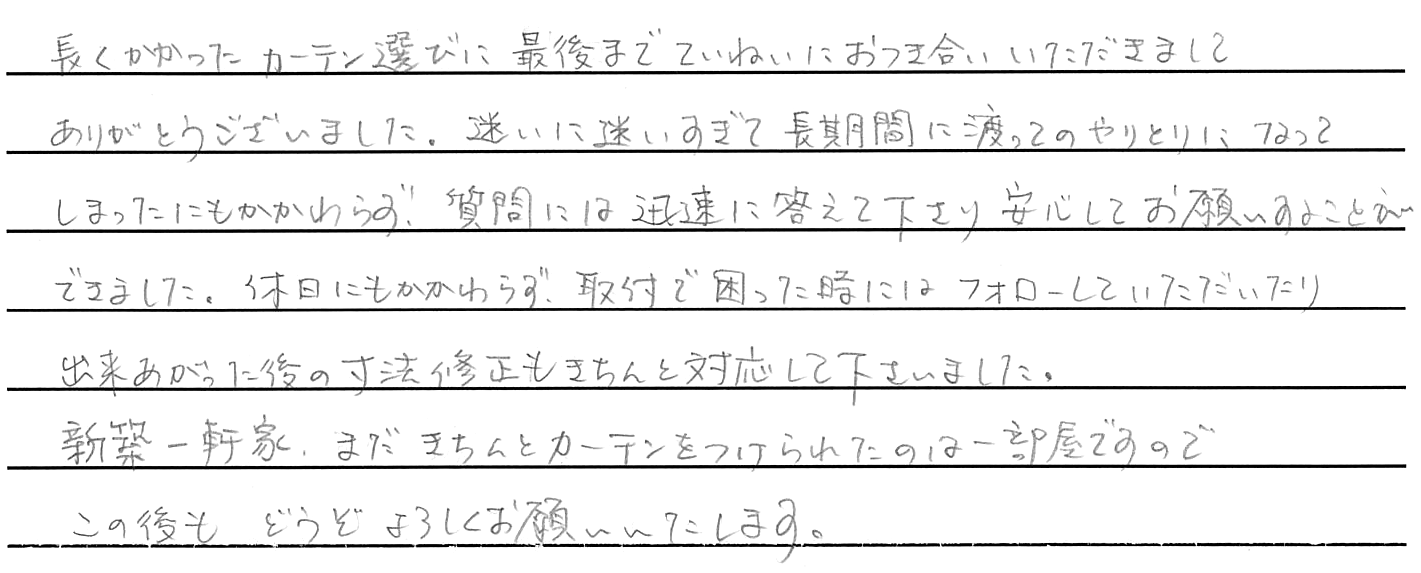 長くかかった カーテン選びに 最後まで ていねいにおつき合い いただきまして
ありがとうございました。迷いに迷いすぎて 長期間に渡ってのやりとりに なって
しまったにもかかわらず、質問には 迅速に 答えて下さり 安心してお願いすることが
できました。休日にもかかわらず、取付で困った時には フォローしていただいたり
出来あがった後の寸法修正もきちんと対応して下さいました。
新築一軒家、まだ きちんとカーテンをつけられたのは一部屋ですので
この後も どうぞ よろしくお願いいたします。